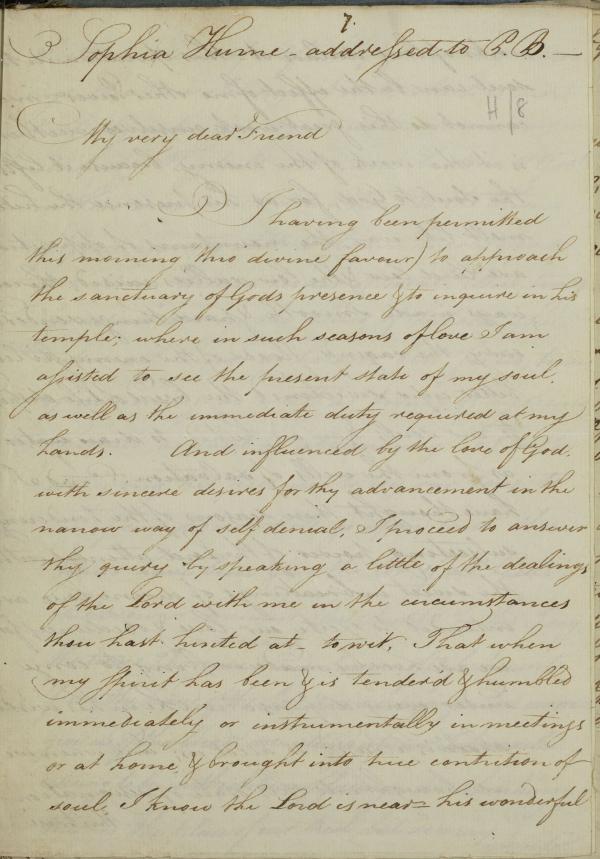 7.
Sophia Hume - addressed to C. B. -
H/8
My very dear Friend
I having been permitted
this morning thro divine favour) to approach
the sanctuary of Gods presence & to inquire in his
temple; where in such seasons of love I am
assisted to see the present state of my soul,
as well as the immediate duty required at my
hands. And influenced by the love of God.
with sincere desires for thy advancement in the
narrow way of self denial, I proceed to answer
thy query by speaking a little of the dealings
of the Lord with me in the circumstances
thou hast hinted at - to wit, That when
my spirit has been & is tender'd & humbled
immediately or instrumentally in meetings
or at home, & brought into true contrition of
soul, I know the Lord is near = his wonderful